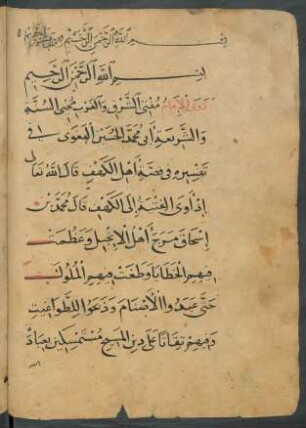 بسم الله الرحمن الرحيم
بسم الله الرحمن الرحيم
الامام مفتى الشرق والغرب محيى السنة
والشريعة ابى محمد الحسين البغوى فى
تفسيره فى قصة اهل الكهف قال الله تعالى
اذ اوى الفتية الى الكهف قال محمد بن
اسحاق مرج اهل الانجيل وعظمت
فيهم الخطايا وطغت فيهم الملوك
حتى عبدوا الاصنام وذبحوا للطواغيت
وفيهم بقايا على دين المسيح مستمسكين بعبادة
الله